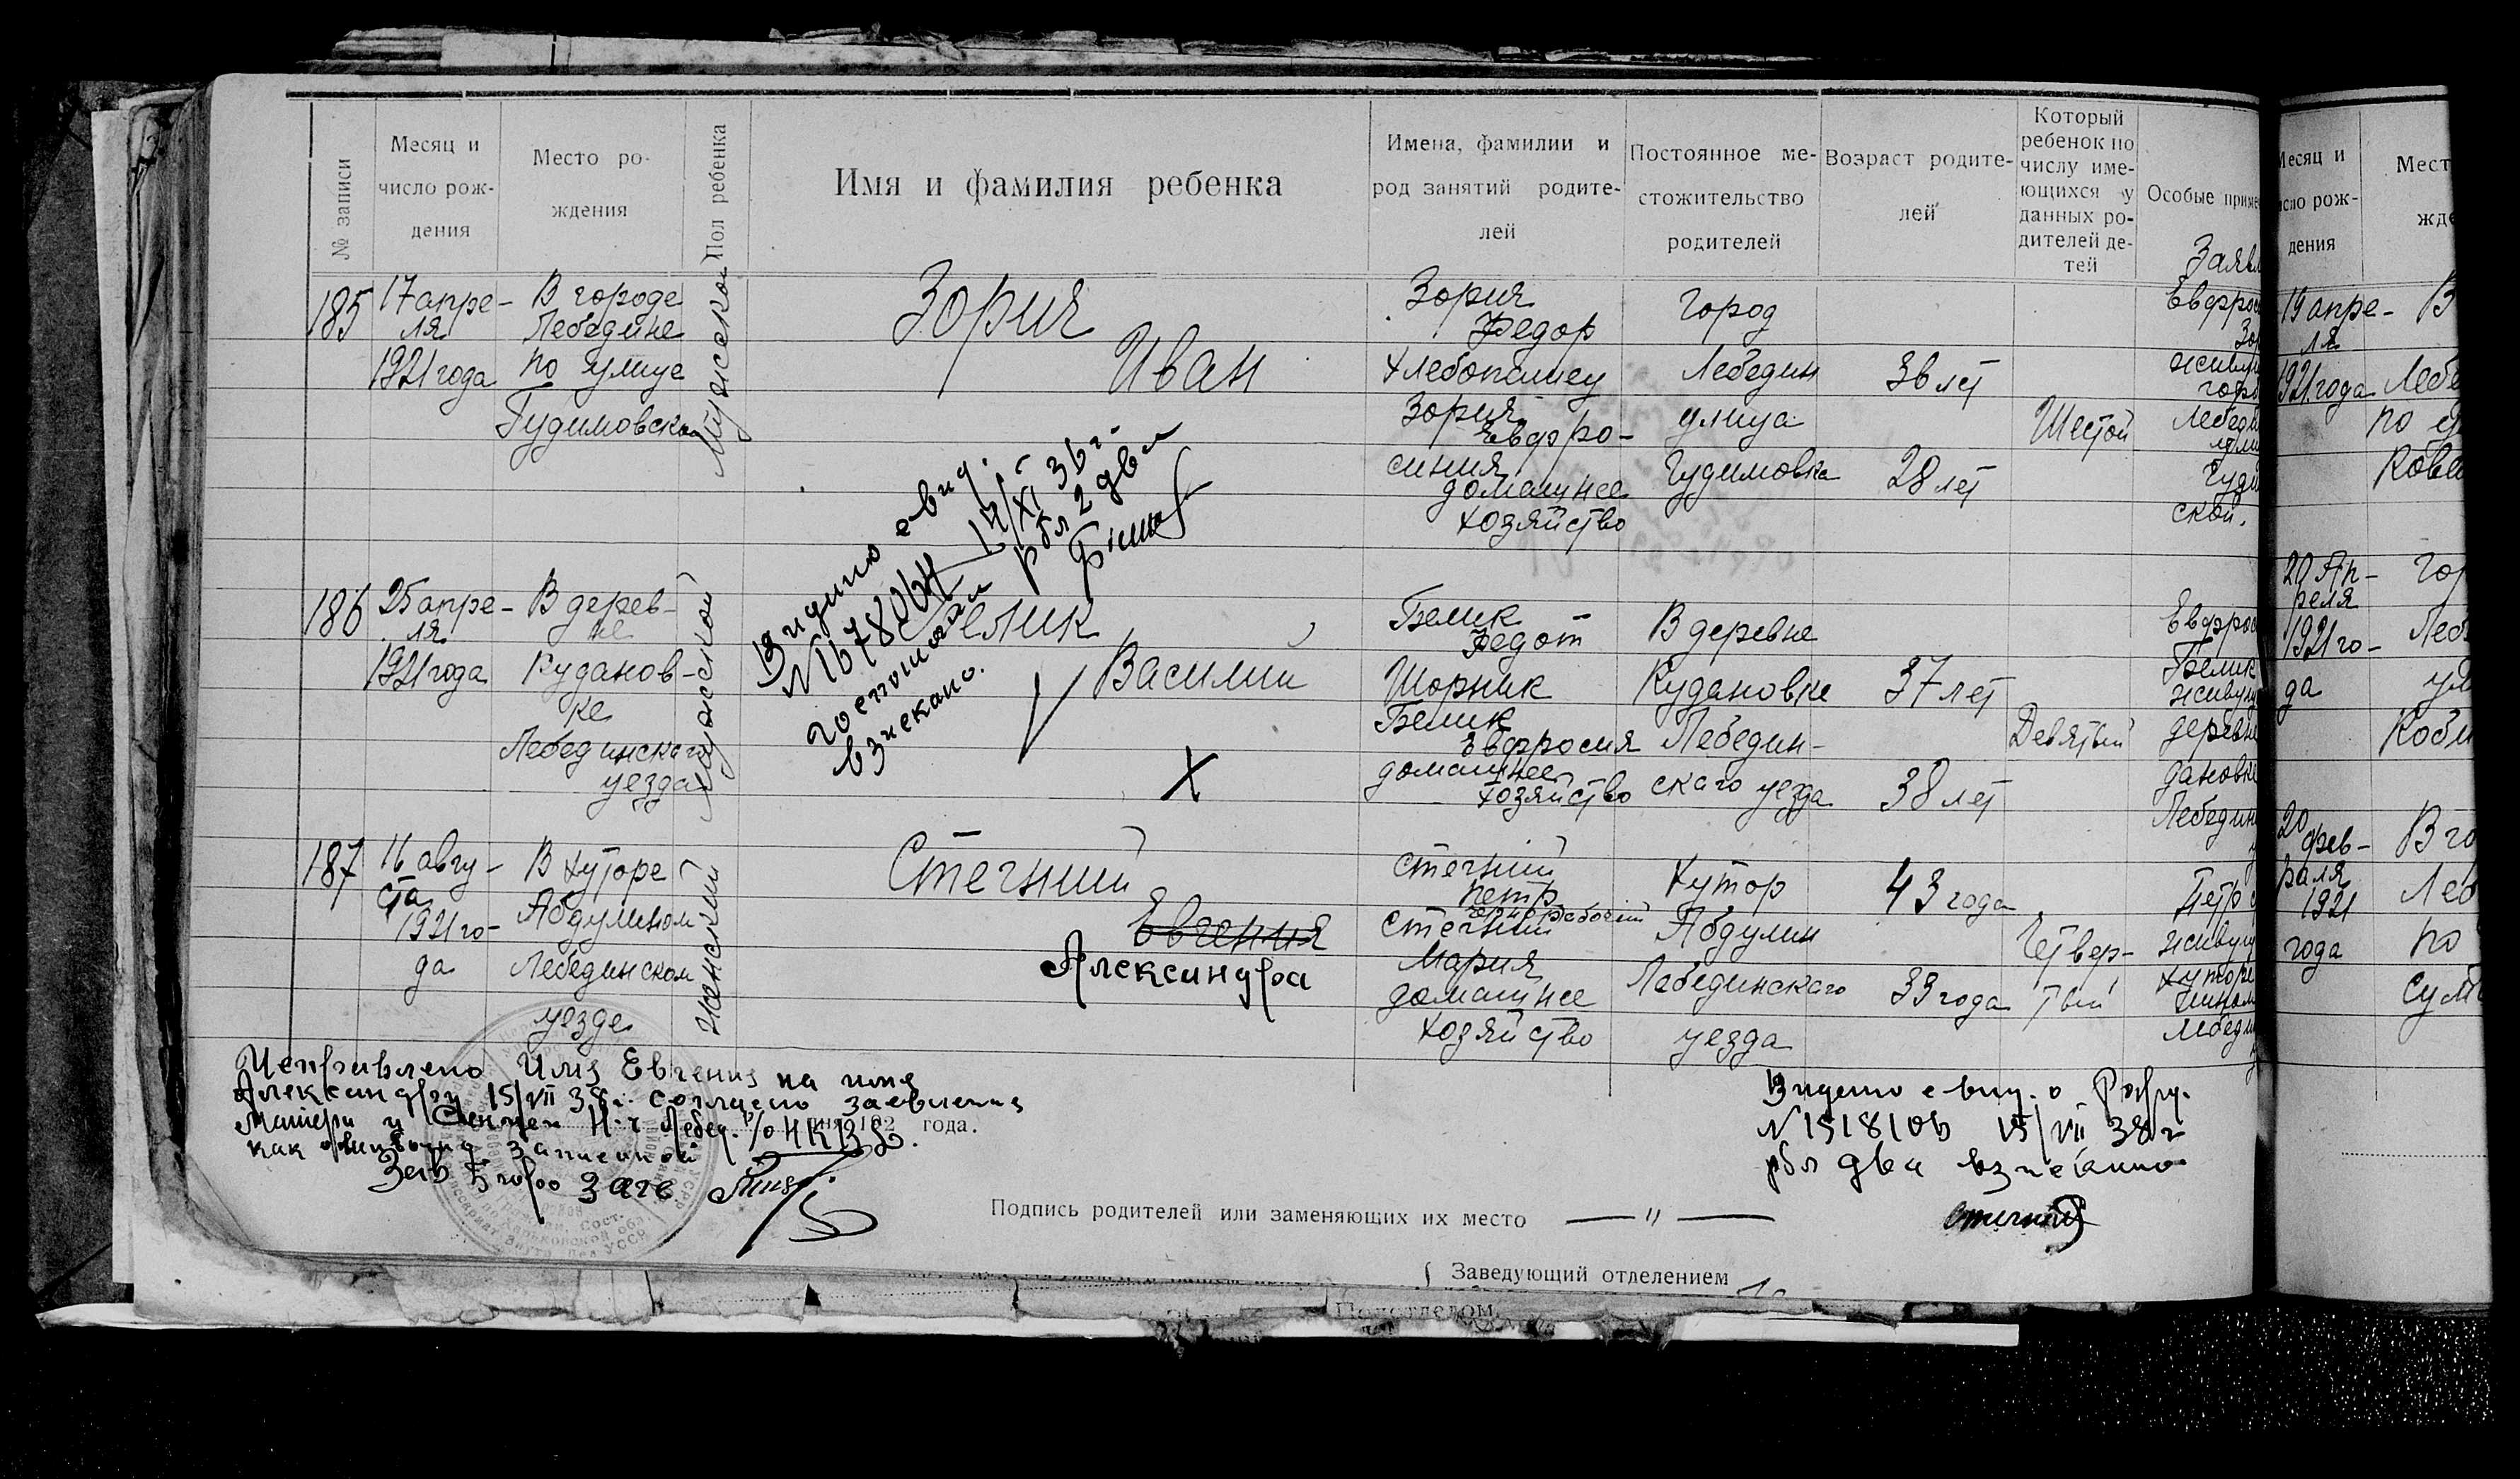 № записи
Месяц и
число рож-
дения
Место ро-
ждения
Пол ребенка
Имя и фамилия ребенка
Имена, фамилии и
род занятий родите-
лей
Постоянное ме-
стожительство
родителей
Возраст родите-
лей
Который
ребенок по
числу име-
ющихся у
данных ро-
дителей де-
тей
Особые приме
Заявл
185
17 апре-
ля
1921 года
В городе
Лебедине
по улице
Гудимовской
Мужеской
Зорич
Иван
Зорич
Федор
Хлебопашец
Зорич
Евфро-
синия
домашнее
хозяйство
Город
Лебедин
улица
Гудимовка
38 лет
28 лет
Шестой
Евфрос
Зор
живущ
горо
Лебеди
ули
Гуди
ской.
186
25 апре-
ля
1921 года
В дерев-
не
Куданов-
ке
Лебединскаго
уезда
Мужеской
Белик
Василий
Видано свид.
N1678064 17/XI 36 г.
госпошлини рбл 2 два
взискано.
X
Белик
Федот
Шорник
Белик
Евфросия
домашнее
хозяйство
В деревне
Кудановке
Лебедин-
скаго уезда
37 лет
38 лет
Девятый
Евфрос
Белик
живущ
деревне
дановке
Лебедин
187
16 авгу-
ста
1921 го-
да
В хуторе
Абдулином
Лебединском
уезде
Женский
Стечний
Евгения
Александра
Стечний
Петр
чернорабочий
Стечний
Мария
домашнее
хозяйство
Хутор
Абдулин
Лебединскаго
уезда
43 года
33 года
Четвер-
тый
Петр С
живущ
хуторе
лином
Лебедин
Исправлено имя Евгения на имя
Александра 15/VII 38 г. согласно заявления
матери и
дня 192 года.
как
Зав Бюро Загс
Видано свид. о Рожд.
N1518106 15/VII 38 г
рбл два взискано
Стечний
Подпись родителей или заменяющих их место — " —
Заведующий отделением
Подотделом
Месяц и
исло рож-
дения
Мест
жде
19 апре-
ля
1921 года
В
Лебе
по у
20 Ап-
реля
1921 го-
да
Гор
Леб
ул
20
фев-
раля
1921
года
В го
Леб
по
Сум